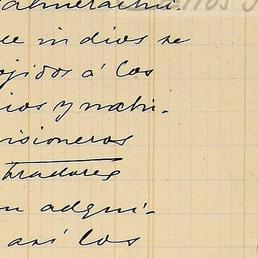 ue indios se
ojidos á los
ios y nabi-
isioneros
tradores
on adqui-
así los